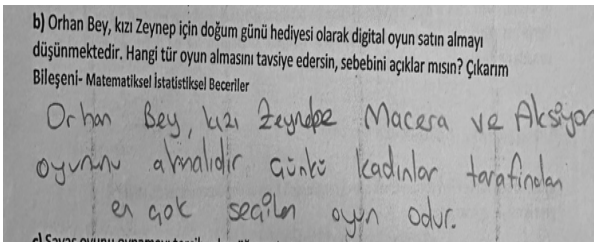 b) Orhan Bey, kızı Zeynep için doğum günü hediyesi olarak digital oyun satın almayı
düşünmektedir. Hangi tür oyun almasını tavsiye edersin, sebebini açıklar mısın? Çıkarım
Bileşeni- Matematiksel İstatistiksel Beceriler
Orhan Bey, kızı Zeynepe Macera ve Aksiyon
oyununu almalıdır Çünkü kadınlar tarafından
en çok seçilen oyun odur.